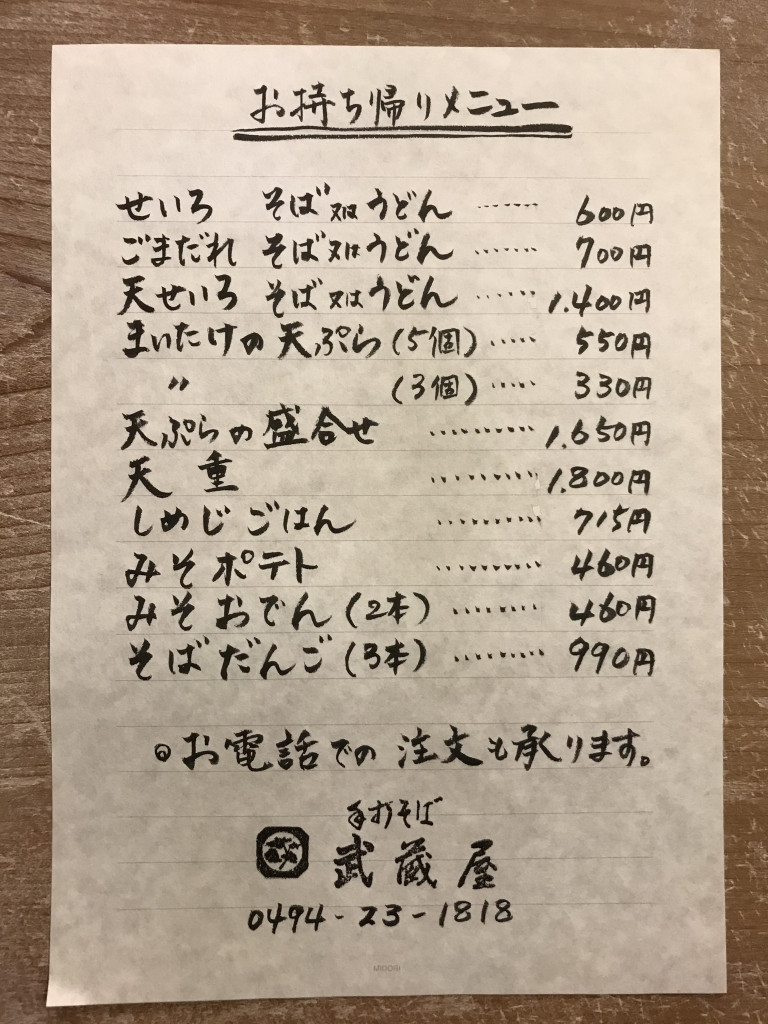 お持ち帰りメニュー
せいろ そば又はうどん ‥‥‥ 600円
ごまだれ そば又はうどん ‥‥‥ 700円
天せいろ そば又はうどん ‥‥‥ 1.400円
まいたけの天ぷら(5個) ‥‥‥ 550円
〃 (3個) ‥‥‥ 330円
天ぷらの盛合せ ‥‥‥‥‥ 1.650円
天重 ‥‥‥‥‥ 1.800円
しめじごはん ‥‥‥‥‥ 715円
みそポテト ‥‥‥‥‥ 460円
みそおでん(2本) ‥‥‥‥ 460円
そばだんご(3本) ‥‥‥‥ 990円
◎お電話での注文も承ります。
手打そば
武蔵屋
0494-23-1818
MIDORI